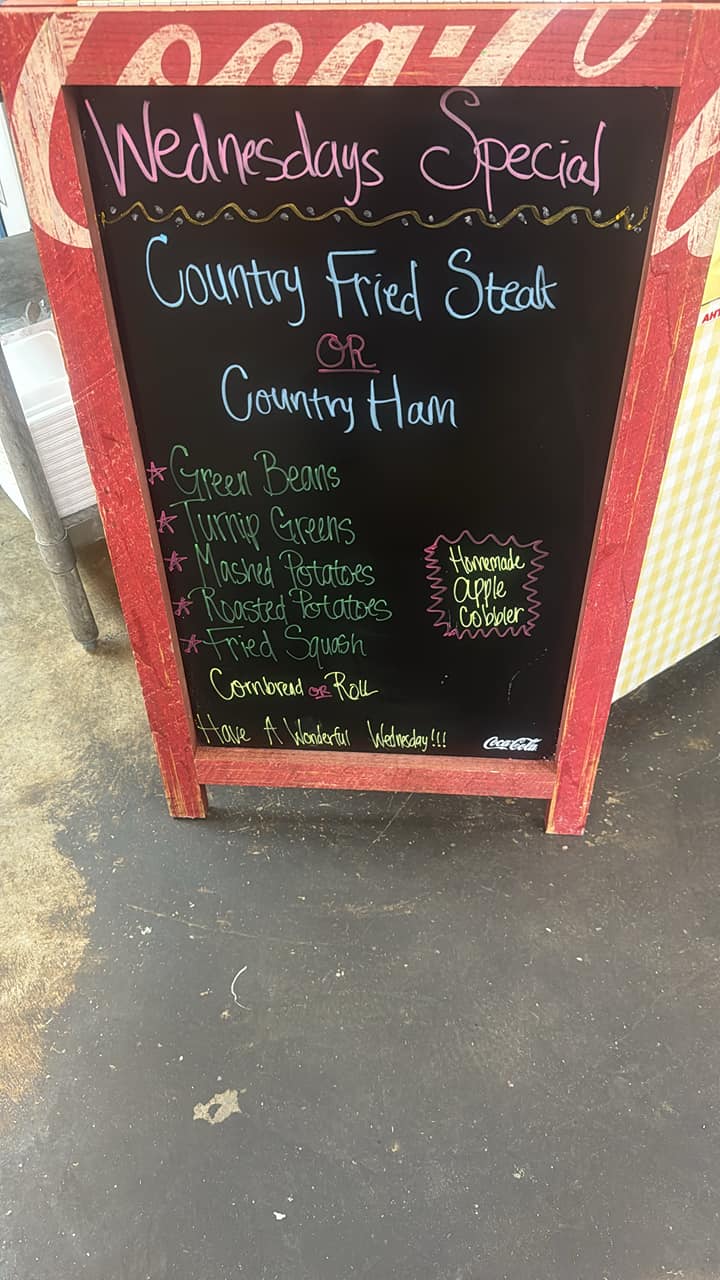 Coca-Cola
Wednesdays Special
Country Fried Steak
OR
Country Ham
Green Beans
Turnip Greens
Mashed Potatoes
Roasted Potatoes
Fried Squash
Homemade
apple
Cobbler
Cornbread OR Roll
Have A Wonderful Wednesday!!!
Coca-Cola